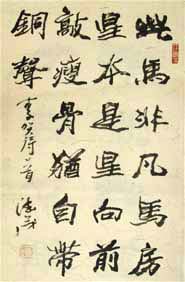 此馬非凡馬房
星本是星向前
敲瘦骨猶自帶
銅聲 李賀詩一首